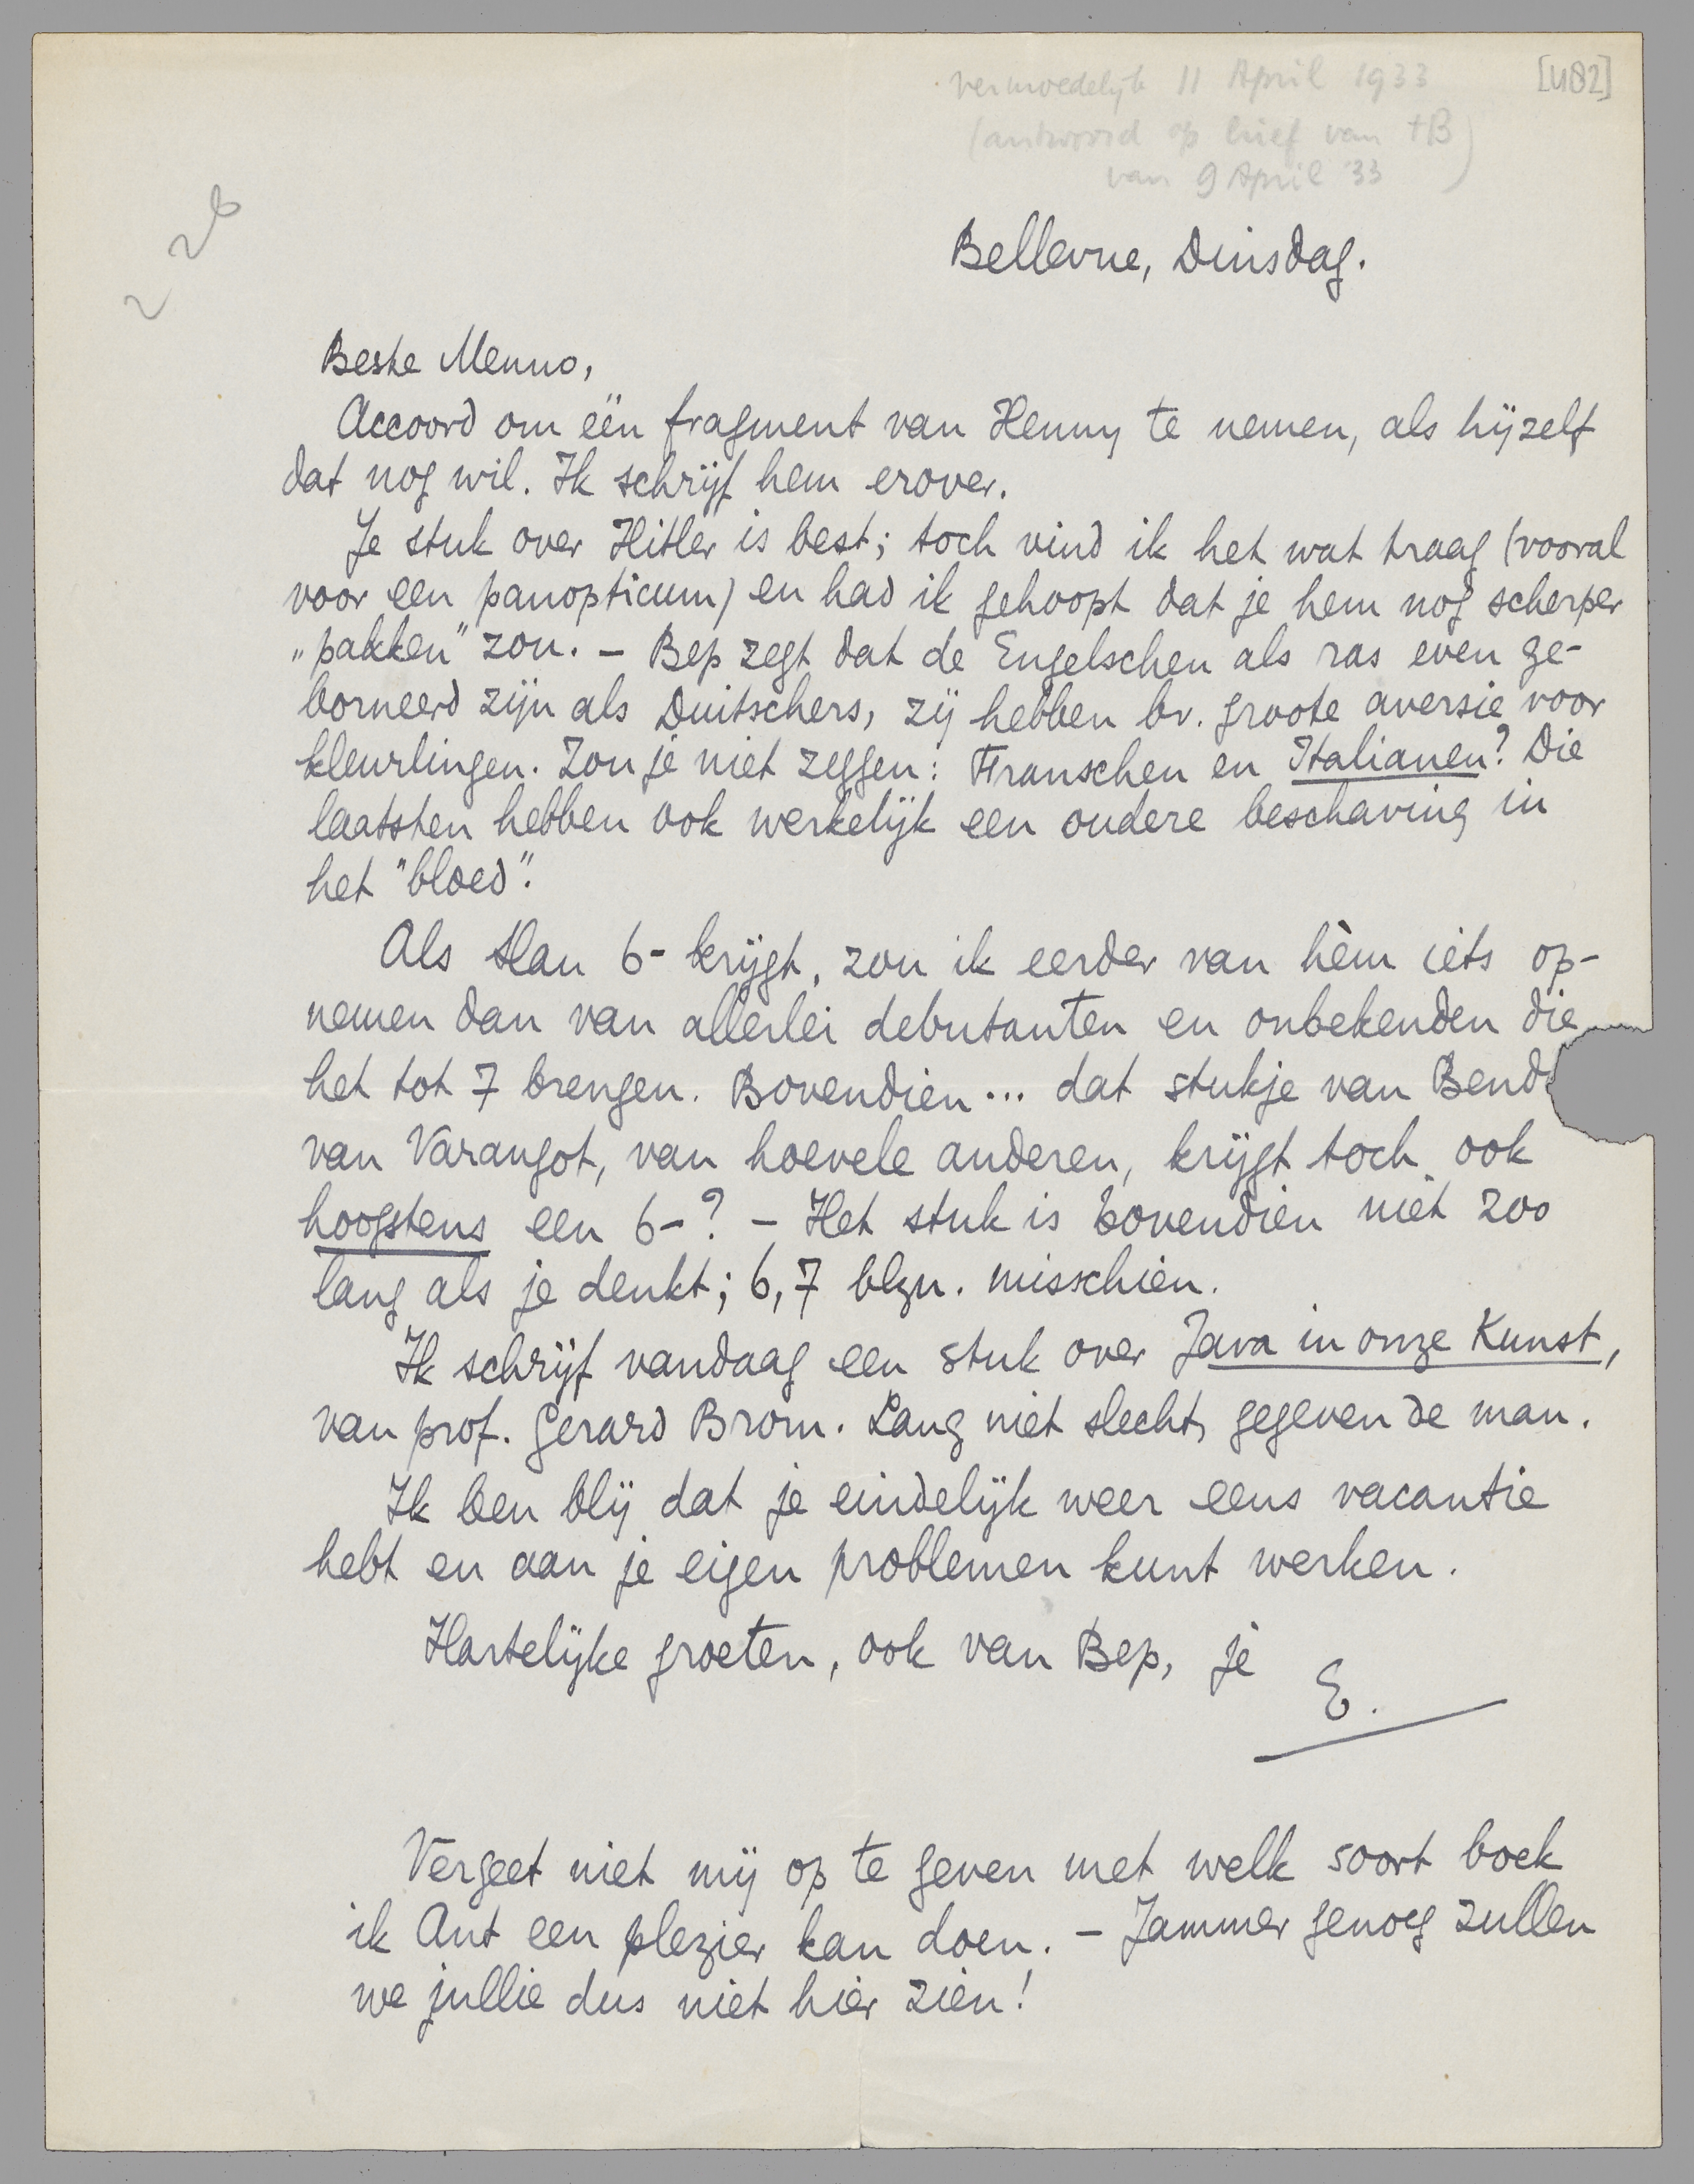 vermoedelijk 11 April 1933
[482]
(antwoord op brief van tB
van 9 April '33)
226
Bellevue, Dinsdag.
Beste Menno,
Accoord om één fragment van Henny te nemen, als hijzelf
dat nog wil. Ik schrijf hem erover.
Je stuk over Hitler is best; toch vind ik het wat traag (vooral
voor een panopticum) en had ik gehoopt dat je hem nog scherper
„pakken" zou. – Bep zegt dat de Engelschen als ras even ge-
borneerd zijn als Duitschers, zij hebben bv. groote aversie voor
kleurlingen. Zou je niet zeggen: Franschen en Italianen? Die
laatsten hebben ook werkelijk een oudere beschaving in
het "bloed".
Als Han 6- krijgt, zou ik eerder van hèm iets op-
nemen dan van allerlei debutanten en onbekenden die
het tot 7 brengen. Bovendien... dat stukje van Bend
van Varangot, van hoevele anderen, krijgt toch ook
hoogstens een 6-? – Het stuk is bovendien niet zoo
lang als je denkt; 6, 7 blzn. misschien.
Ik schrijf vandaag een stuk over Java in onze Kunst,
van prof. Gerard Brom. Lang niet slecht, gegeven de man.
Ik ben blij dat je eindelijk weer eens vacantie
hebt en aan je eigen problemen kunt werken.
Hartelijke groeten, ook van Bep, je
E.
Vergeet niet mij op te geven met welk soort boek
ik Ant een plezier kan doen. – Jammer genoeg zullen
we jullie dus niet hier zien!